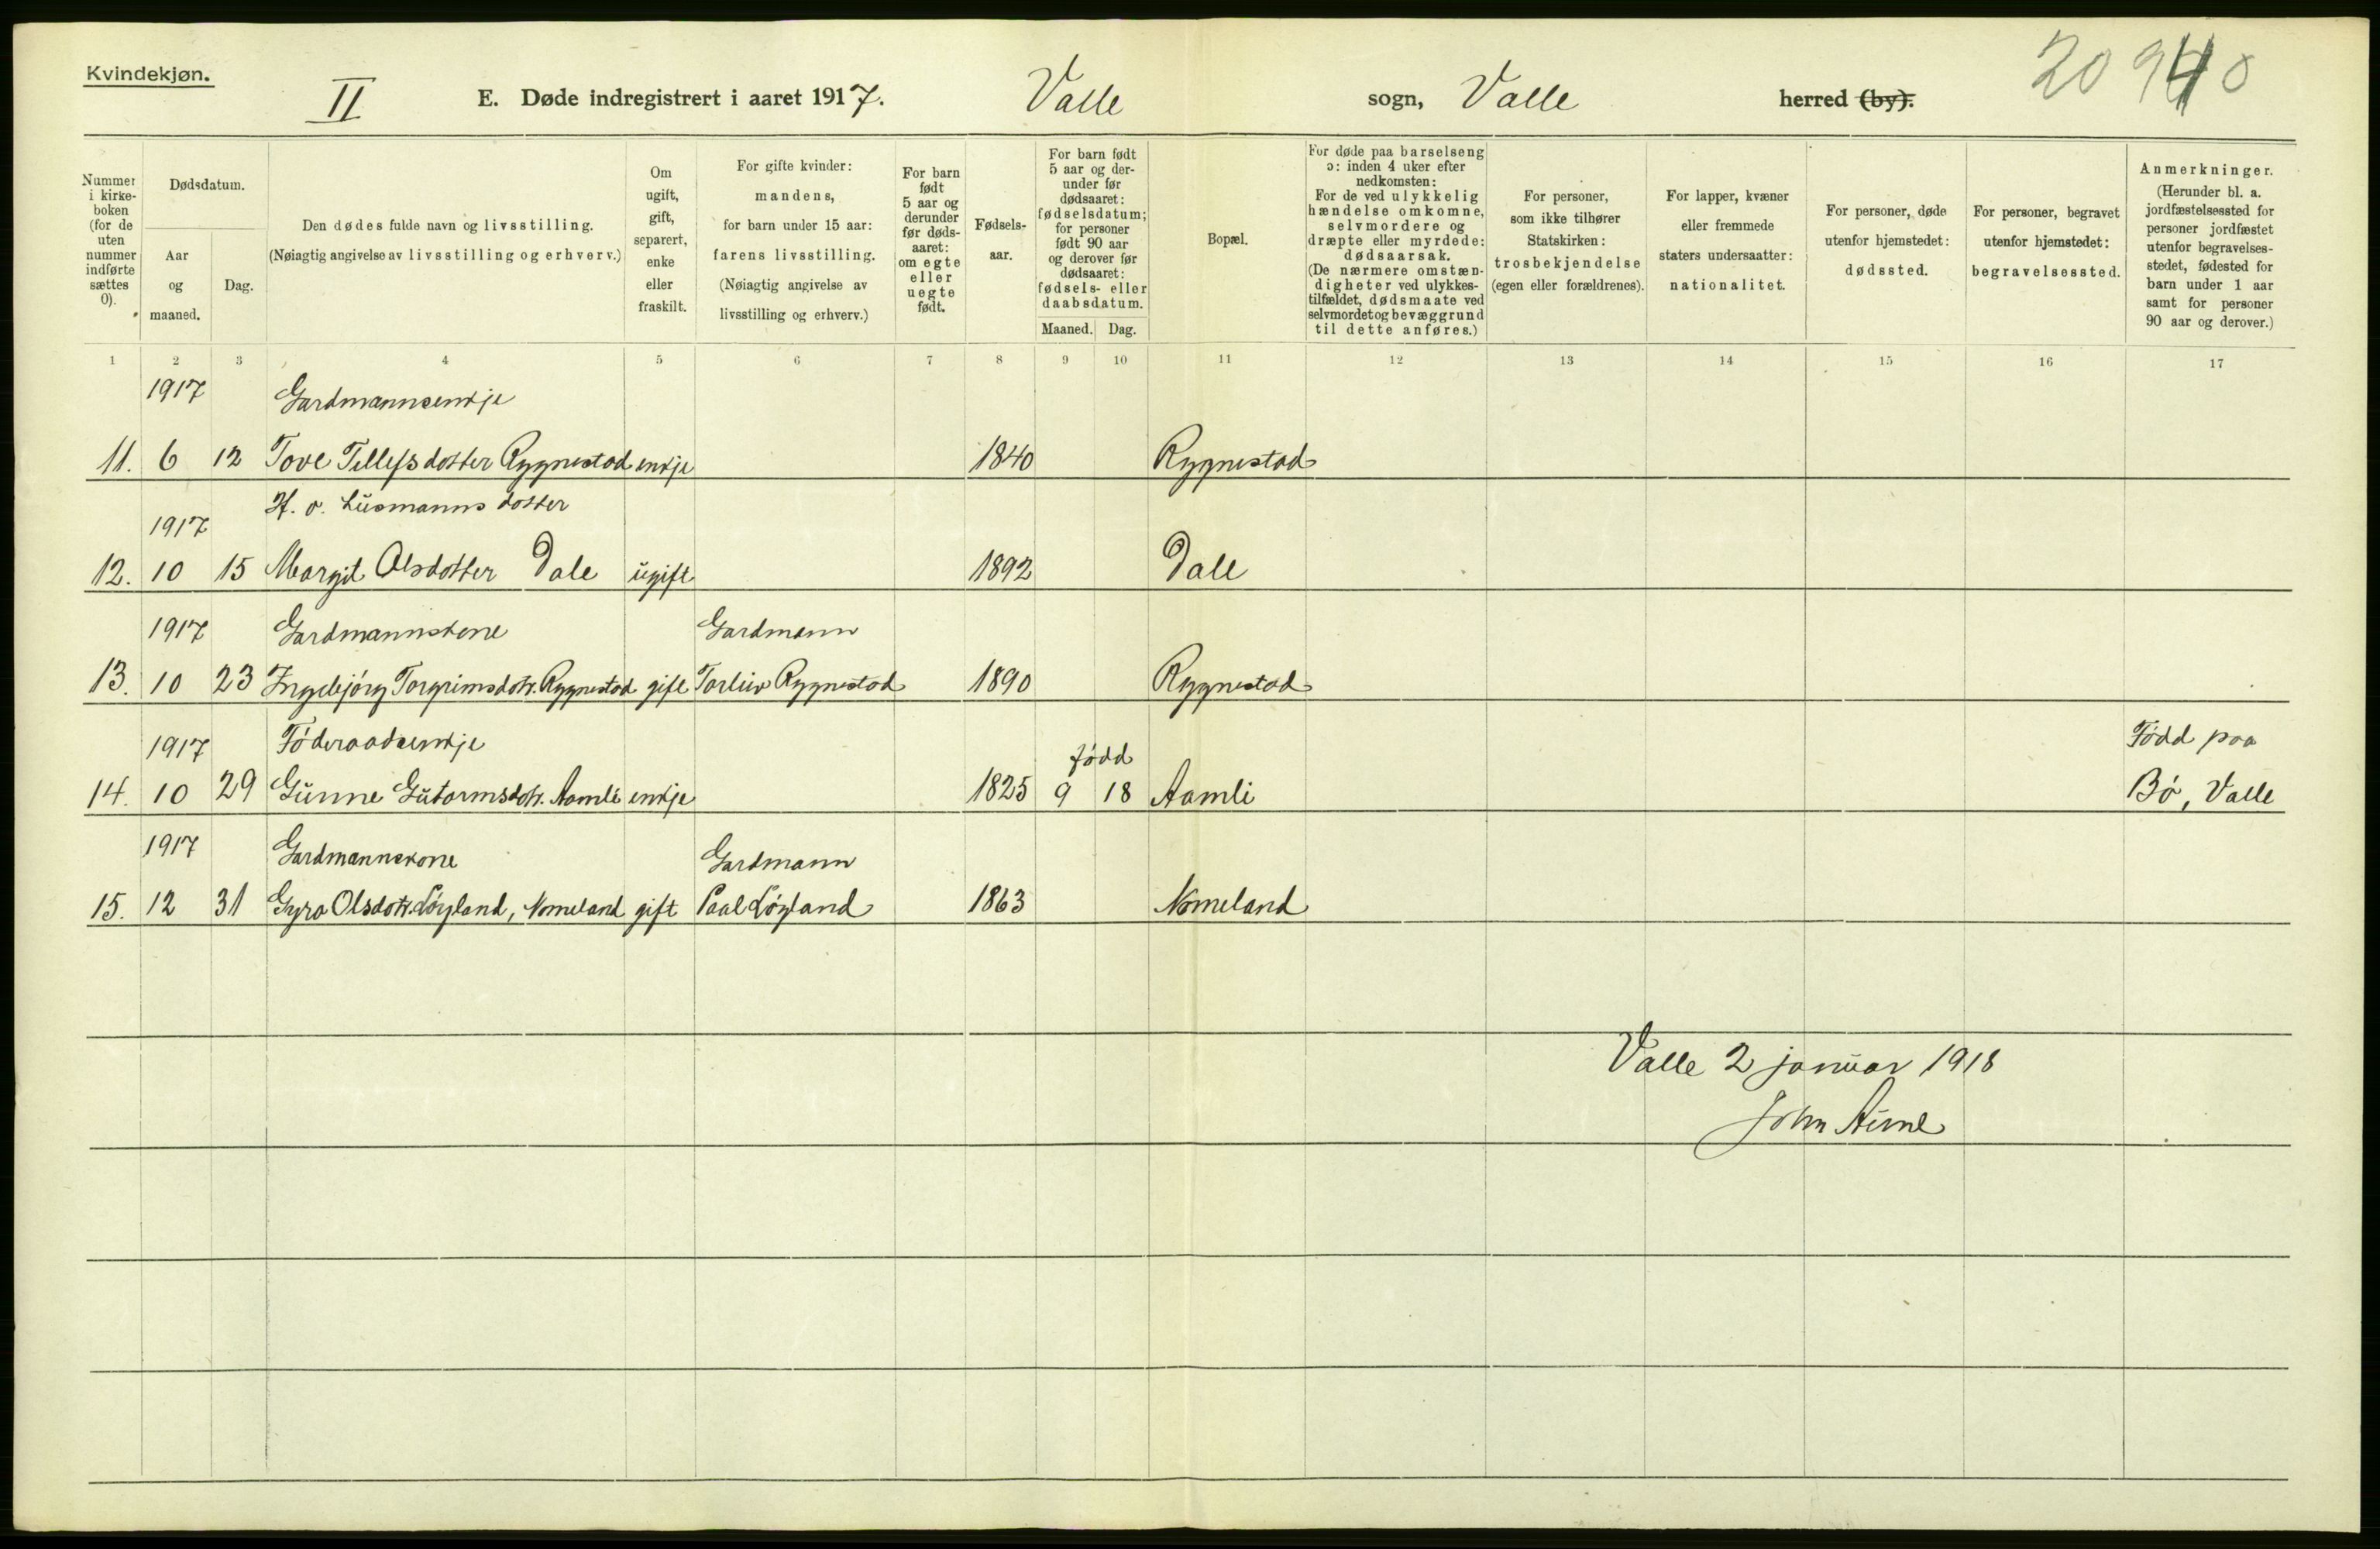 Kvindekjøn.
II
E. Døde indregistrert i aaret 1917. Valle sogn, Valle herred (by).
20940
Nummer i kirke-boken (for de uten nummer indførte sættes 0).
Dødsdatum.
Aar og maaned.
Dag.
Den dødes fulde navn og livsstilling.
(Nøiagtig angivelse av livsstilling og erhverv.)
Om ugift, gift, separert, enke eller fraskilt.
For gifte kvinder: mandens, for barn under 15 aar: farens livsstilling. (Nøiagtig angivelse av livsstilling og erhverv.)
For barn født 5 aar og derunder før døds-aaret: om egte eller uegte født.
Fødsels-aar.
For barn født 5 aar og der-under før dødsaaret: fødselsdatum; for personer født 90 aar og derover før dødsaaret: fødsels- eller daabsdatum.
Maaned. Dag.
Bopæl.
For døde paa barselseng ɔ: inden 4 uker efter nedkomsten: For de ved ulykkelig hændelse omkomne, selvmordere og dræpte eller myrdede: dødsaarsak. (De nærmere omstæn-digheter ved ulykkes-tilfældet, dødsmaate ved selvmordet og bevæggrund til dette anføres.)
For personer, som ikke tilhører Statskirken: trosbekjendelse (egen eller forældrenes).
For lapper, kvæner eller fremmede staters undersaatter: nationalitet.
For personer, døde utenfor hjemstedet: dødssted.
For personer, begravet utenfor hjemstedet: begravelsessted.
Anmerkninger. (Herunder bl. a. jordfæstelsessted for personer jordfæstet utenfor begravelses-stedet, fødested for barn under 1 aar samt for personer 90 aar og derover.)
1 2 3 4 5 6 7 8 9 10 11 12 13 14 15 16 17
1917 Gardmannsenkje
11. 6 12 Tove Tellefsdotter Rygnestad enkje 1840 Rygnestad
H. o. Husmanns dotter
1917
12. 10 15 Margit Olsdotter Dale ugift 1892 Dale
1917 Gardmannskone Gardmann
13. 10 23 Ingebjörg Torgrimsdotr. Rygnestad gift Torleiv Rygnestad 1890 Rygnestad
1917 Föderaadsenkje född Född paa
14. 10 29 Gunne Gutormsdotr. Aamli enkje 1825 9 18 Aamli Bö, Valle
1917 Gardmannskone Gardmann
15. 12 31 Gyro Olsdotr. Löyland, Nomeland gift Paal Löyland 1863 Nomeland
Valle 2 januar 1918